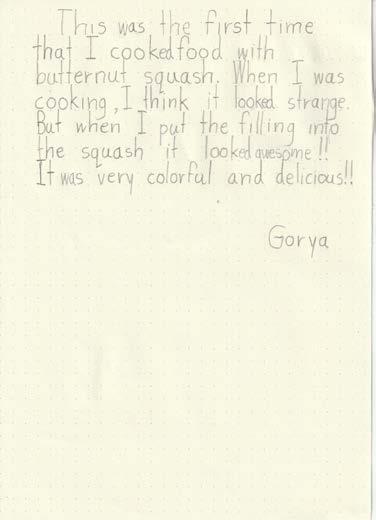 This was the first time
that I cooked food with
butternut squash. When I was
cooking, I think it looked strange.
But when I put the filling into
the squash it looked awesome!!
It was very colorful and delicious!!
Gorya